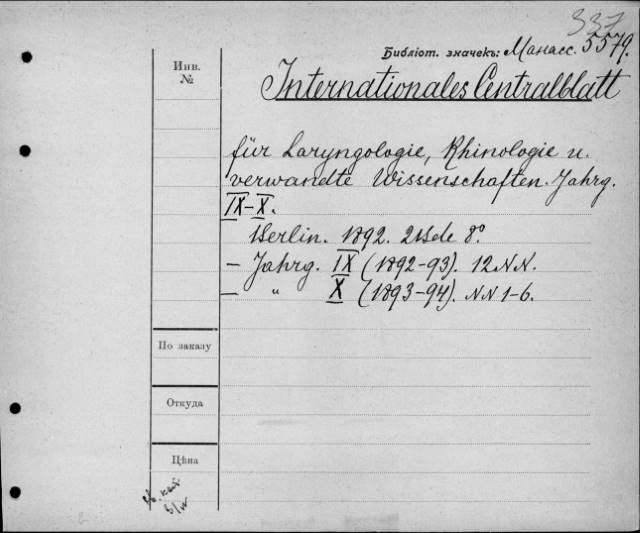 337
Библіот. значекъ: Манасс. 5579.
Инв.
№
Internationales Centralblatt
für Laryngologie, Rhinologie u.
verwandte Wissenschaften. Jahrg.
IX-X.
Berlin. 1892. 2 Bde 8º
— Jahrg. IX (1892-93). 12 NN.
— " X (1893-94). NN 1-6.
По заказу
Откуда
Цѣна